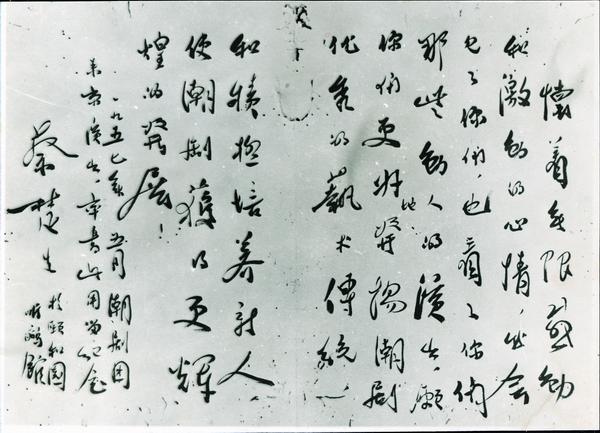 懷着無限感動
和激動的心情，会
見了你們，也看了你們
那些動人的演出，願
你們更好地發揚潮劇
优秀的藝术傳統，
和積極培養新人
使潮劇獲得更輝
煌的發展！
一九五七年五月潮劇团
来京演出，草書此用留紀念
蔡楚生
於頤和園
听鸝館